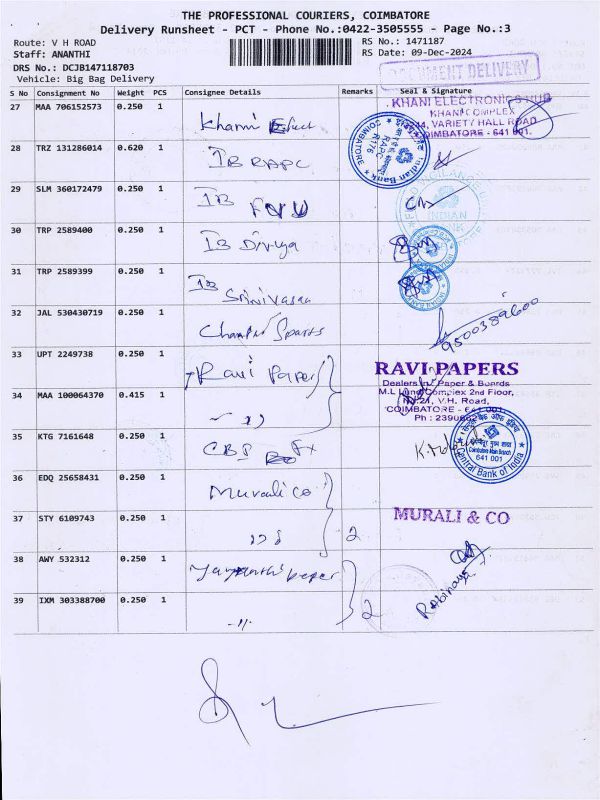 THE PROFESSIONAL COURIERS, COIMBATORE
Delivery Runsheet - PCT - Phone No.:0422-3505555 - Page No.:3
Route: V H ROAD
RS No.: 1471187
Staff: ANANTHI
RS Date: 09-Dec-2024
DRS No.: DCJB147118703
Vehicle: Big Bag Delivery
DOCUMENT DELIVERY
S No Consignment No Weight PCS Consignee Details Remarks Seal & Signature
27 MAA 706152573 0.250 1 Khanni
KHANI ELECTRONICS HUB
KHANI COMPLEX
VARIETY HALL ROAD
COIMBATORE - 641 001.
28 TRZ 131286014 0.620 1 IB RAPC
Indian Bank
RAPC
COIMBATORE
29 SLM 360172479 0.250 1 IB
INDIAN BANK
30 TRP 2589400 0.250 1 IB Divya
31 TRP 2589399 0.250 1 IB Srinivasan
32 JAL 530430719 0.250 1 Sports
9500389600
33 UPT 2249738 0.250 1 Ravi Paper
RAVI PAPERS
Dealers in Paper & Boards
Complex 2nd Floor,
V.H. Road,
COIMBATORE - 641 001.
34 MAA 100064370 0.415 1
35 KTG 7161648 0.250 1 CBS
Coimbatore Main Branch
641 001
Central Bank of India
36 EDQ 25658431 0.250 1 Murali co
37 STY 6109743 0.250 1 2
MURALI & CO
38 AWY 532312 0.250 1 paper
39 IXM 303388700 0.250 1 -11- 2